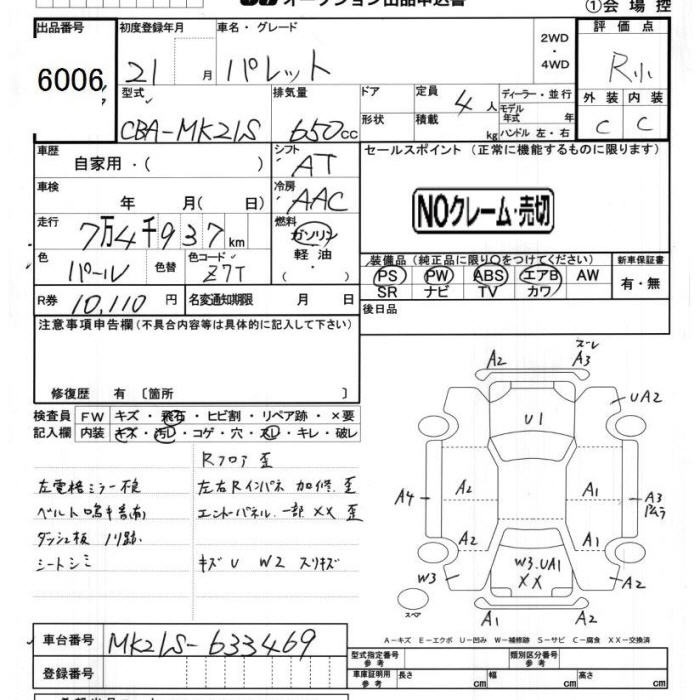 オークション出品申込書
①会場控
出品番号
6006
初度登録年月
21 月
車名・グレード
パレット
2WD
・
4WD
評価点
R小
外装 内装
C C
型式
CBA-MK21S
排気量
650 cc
ドア
形状
定員
4 人
積載
kg
ディーラー・並行
モデル
年式 年
ハンドル 左・右
車歴
自家用・( )
シフト
AT
車検
年 月( 日)
冷房
AAC
走行
7万4千937 km
燃料
ガソリン
軽油
・
色
パール
色替
色コード
Z7T
R券 10,110 円
名変通知期限 月 日
セールスポイント (正常に機能するものに限ります)
NOクレーム・売切
装備品 (純正品に限り〇をつけてください)
PS PW ABS エアB AW
SR ナビ TV カワ
新車保証書
有・無
後日品
注意事項申告欄(不具合内容等は具体的に記入して下さい)
修復歴 有 〔箇所 〕
検査員
記入欄
FW キズ・飛石・ヒビ割・リペア跡・×要
内装 キズ・汚れ・コゲ・穴・スレ・キレ・破レ
Rフロア 歪
左電格ミラー不良
左右Rインパネ 加修 歪
ベルト鳴キ音(有)
エンドーパネル 一部 XX 歪
ダッシュ板 ノリ跡
シートシミ
キズ U W2 スリキズ
スレ
A2 A3
UA2
U1
A4 A2 A1 A3
A2 A1
W3 W3.UA1
XX A2
スペア
A1 A2
A-キズ E-エクボ U-凹み W-補修跡 S-サビ C-腐食 XX-交換済
車台番号
MK21S-633469
登録番号
型式指定番号
参考
類別区分番号
参考
車庫証明用
参考
長さ cm 幅 cm 高さ cm